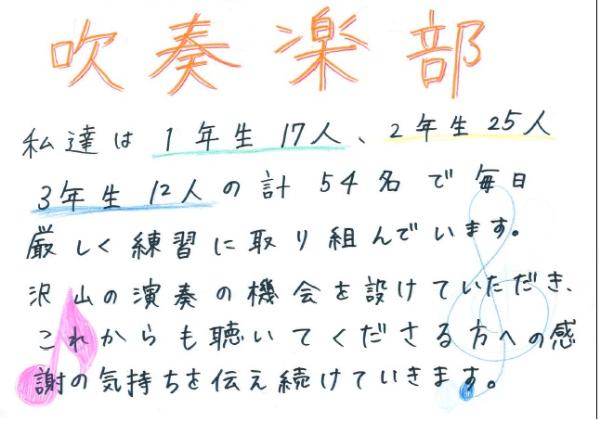 吹奏楽部
私達は1年生17人、2年生25人
3年生12人の計54名で毎日
厳しく練習に取り組んでいます。
沢山の演奏の機会を設けていただき、
これからも聴いてくださる方への感
謝の気持ちを伝え続けていきます。